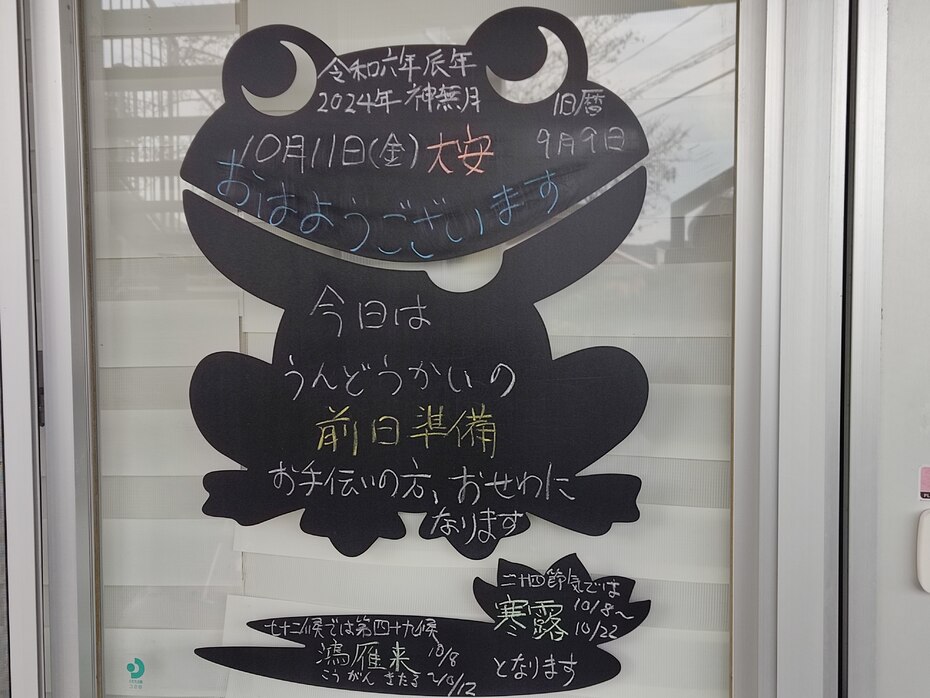 令和六年辰年
2024年 神無月
旧暦
9月9日
10月11日(金)大安
おはようございます
今日は
うんどうかいの
前日準備
お手伝いの方、おせわに
なります
二十四節気では
寒露 10/8〜
10/22
となります
七十二候では第四十九候
鴻雁来 10/8
こうがんきたる 〜10/12